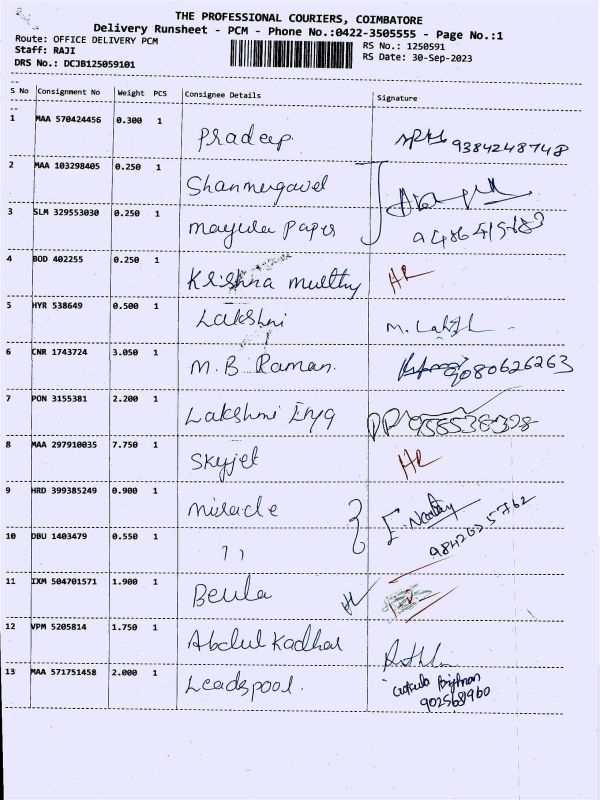 THE PROFESSIONAL COURIERS, COIMBATORE
Delivery Runsheet - PCM - Phone No.:0422-3505555 - Page No.:1
Route: OFFICE DELIVERY PCM
RS No.: 1250591
Staff: RAJI
RS Date: 30-Sep-2023
DRS No.: DCJB125059101
S No Consignment No Weight PCS Consignee Details Signature
1 MAA 570424456 0.300 1 Pradeep 9384248748
2 MAA 103298405 0.250 1 Shanmugavel
3 SLM 329553030 0.250 1 mayula Paper
4 BOD 402255 0.250 1 Krishna murthy
5 HYR 538649 0.500 1 Lakshmi M.
6 CNR 1743724 3.050 1 M.B Raman. 9080626263
7 PON 3155381 2.200 1 Lakshmi Engg
8 MAA 297910035 7.750 1 Skyjet
9 HRD 399385249 0.900 1 miracle
10 DBU 1403479 0.550 1 11 9842625762
11 IXM 504701571 1.900 1 Beula
12 VPM 5205814 1.750 1 Abdul Kadhar
13 MAA 571751458 2.000 1 Leadspool.